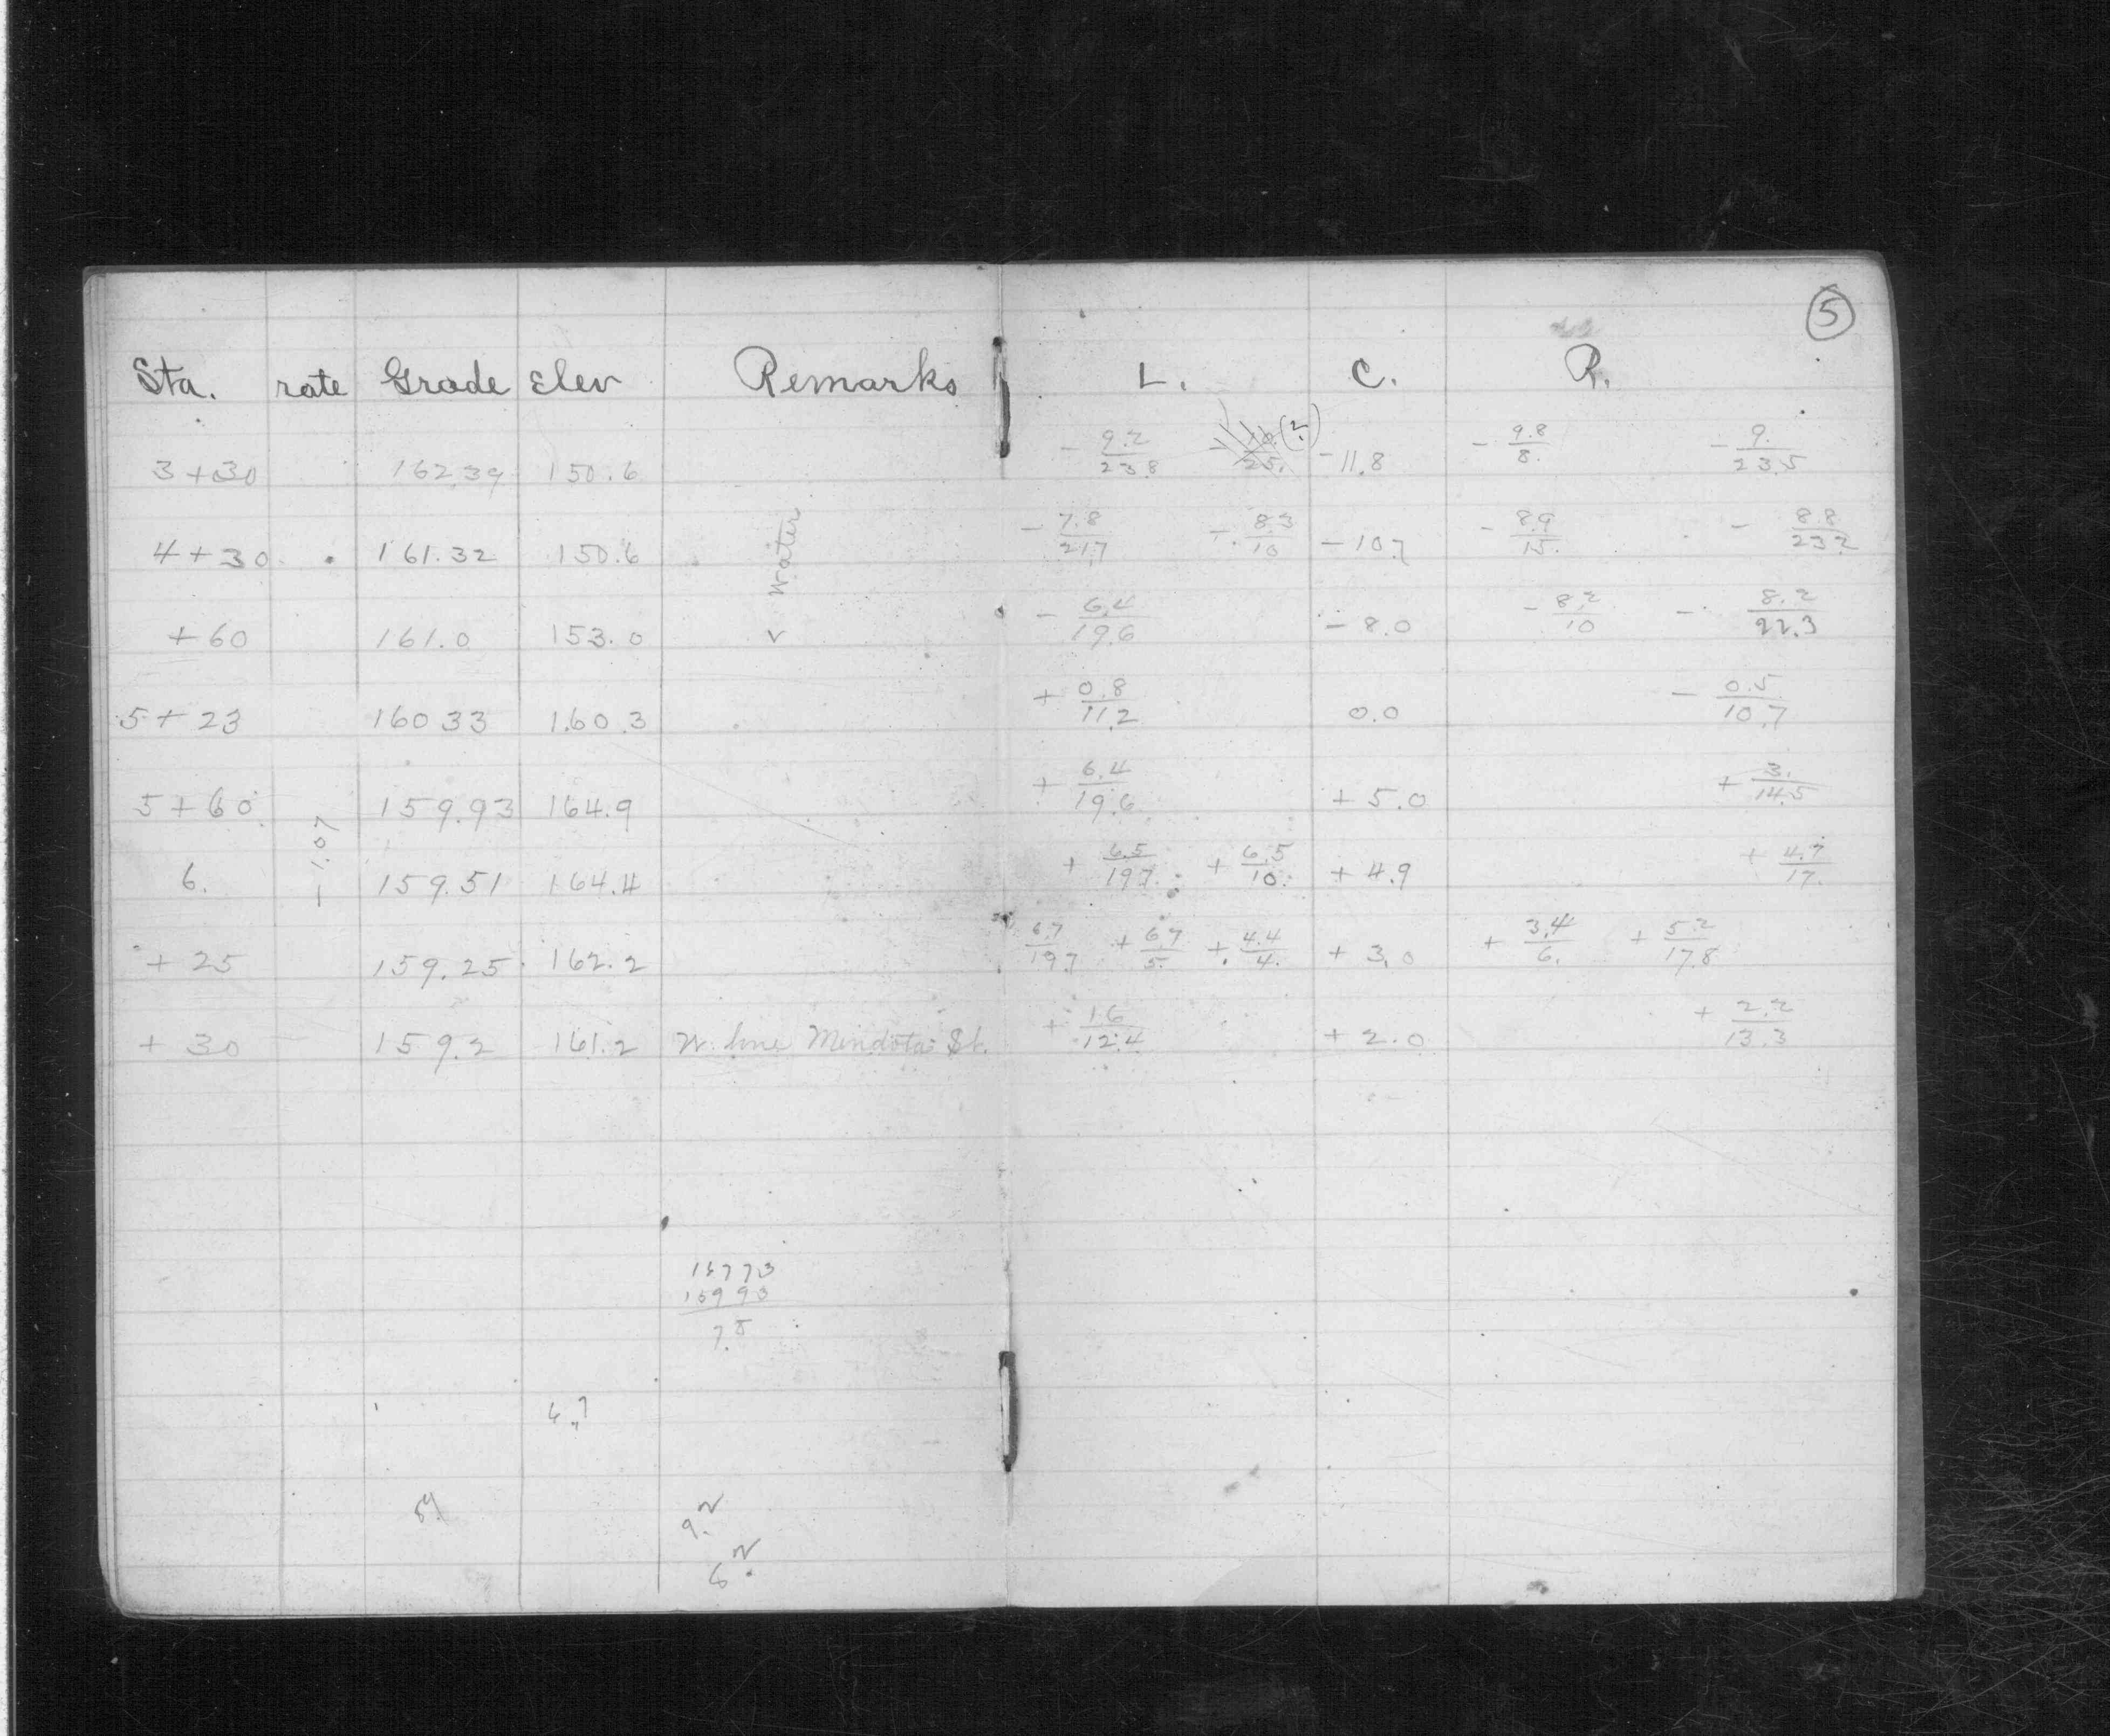 5
Sta. rate Grade Elev Remarks L. C. R.
3+30 162.39 150.6 - 9.2/23.8 (2) -11.8 - 9.8/8. - 9./23.5
4+30 161.32 150.6 Water - 7.8/21.7 - 8.3/10 -10.7 - 8.9/15. - 8.8/23.2
+60 161.0 153.0 - 6.4/19.6 - 8.0 - 8.2/10 - 8.2/22.3
5+23 160 33 160.3 + 0.8/11.2 0.0 - 0.5/10.7
5+60 159.93 164.9 + 6.4/19.6 + 5.0 + 3./14.5
6. - 1.07 159.51 164.4 + 6.5/19.7 + 6.5/10 + 4.9 + 4.7/17.
+ 25 159.25 162.2 6.7/19.7 + 6.7/5. + 4.4/4. + 3.0 + 3.4/6. + 5.2/17.8
+ 30 159.2 161.2 W. line Mendota St. + 1.6/12.4 + 2.0 + 2.2/13.3
159 93
7.8